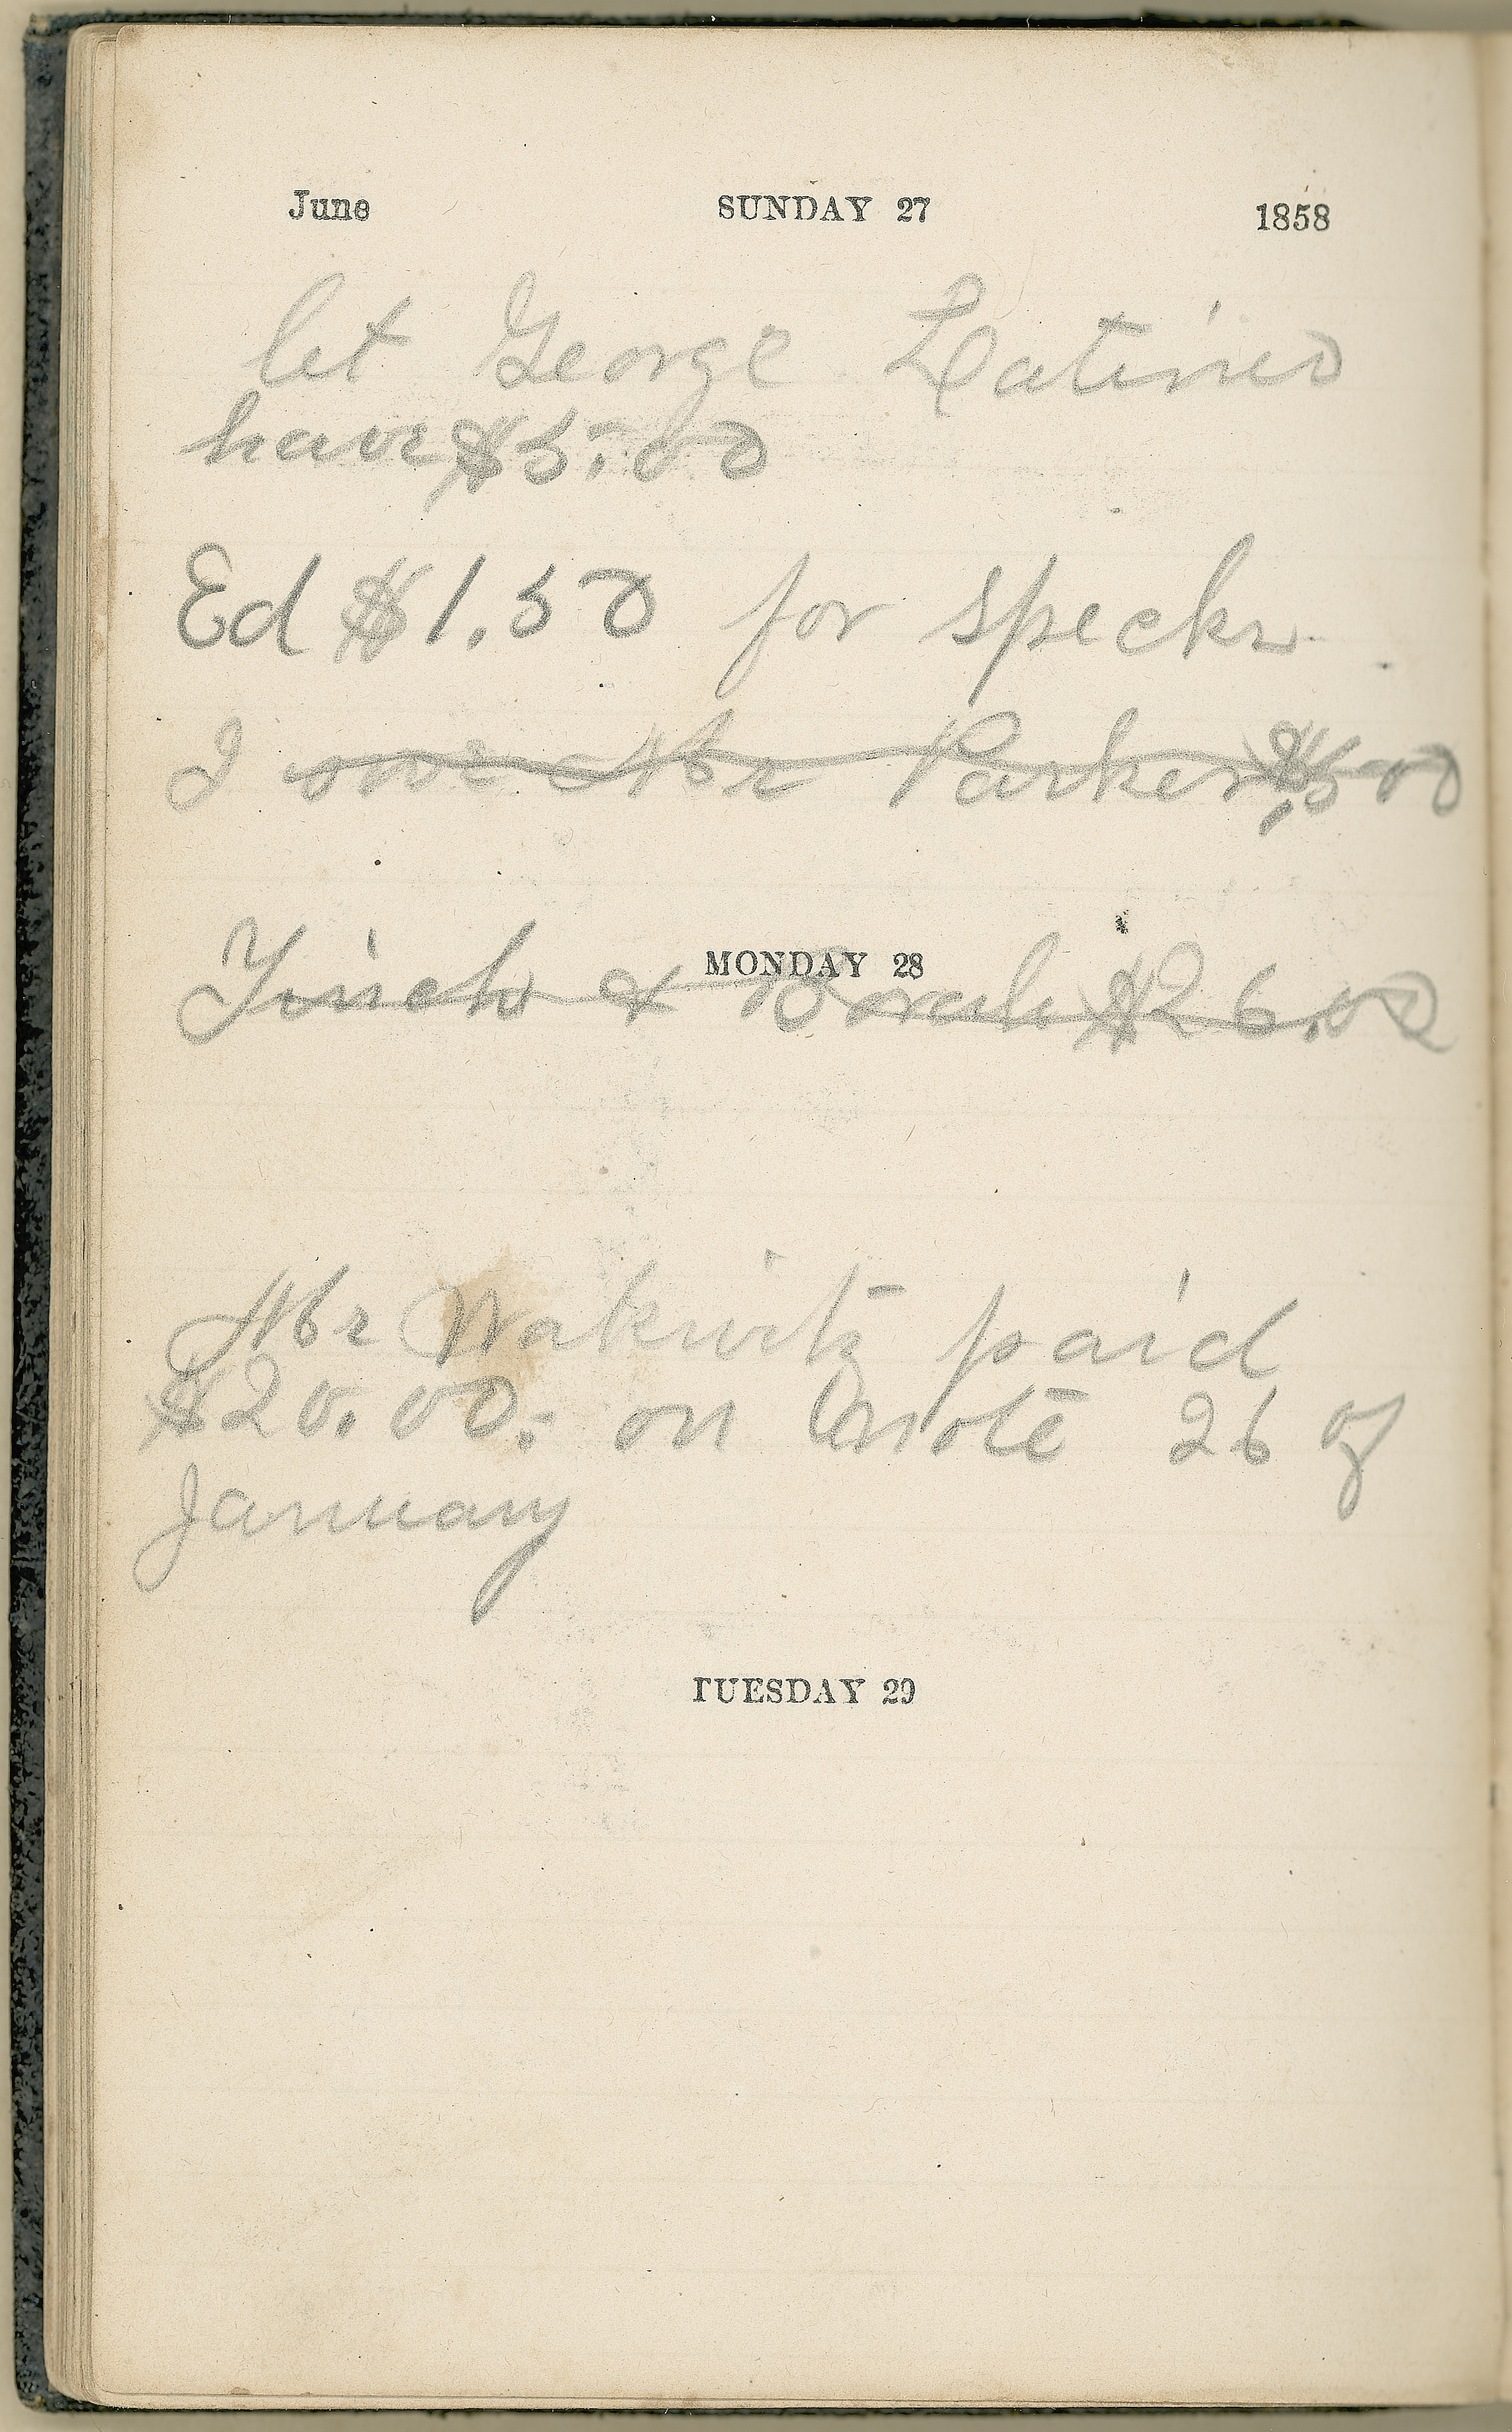 June SUNDAY 27 1858
let George Latimer
have $5.00
Ed $1.50 for specks
I owe Mr Parker $5.00
MONDAY 28
Finch & $26.00
Mr paid
$20.00 on note 26 of
January
TUESDAY 29